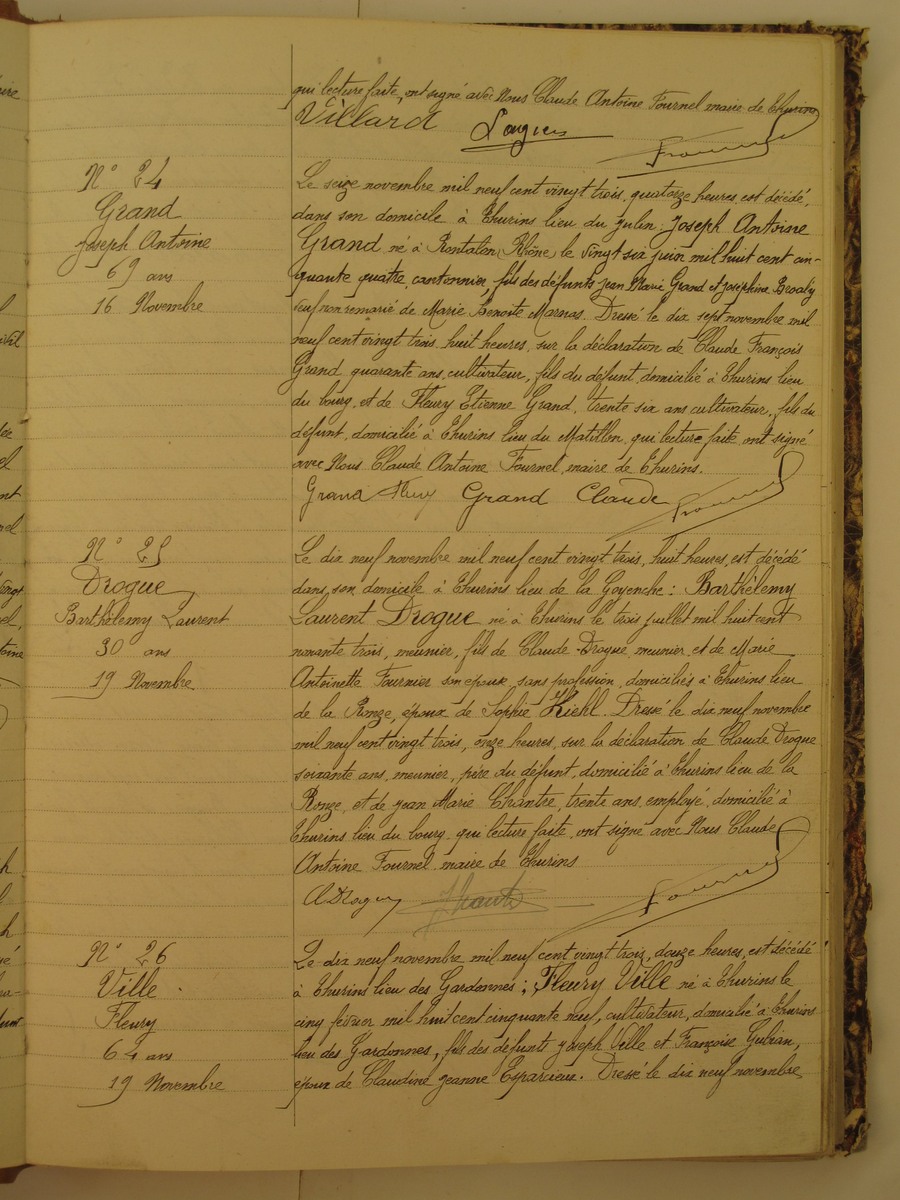 qui lecture faite, ont signé avec Nous Claude Antoine Fournel maire de Thurins
Villard
N° 24
Grand
Joseph Antoine
69 ans
16 Novembre
Le seize novembre mil neuf cent vingt trois, quatorze heures, est décédé,
dans son domicile à Thurins lieu du Julin : Joseph Antoine
Grand né à Rontalon (Rhône) le vingt six juin mil huit cent cin-
quante quatre, cantonnier, fils des défunts Jean Marie Grand et Joséphine
veuf non remarié de Marie Benoite Marnas. Dressé le dix sept novembre mil
neuf cent vingt trois, huit heures, sur la déclaration de Claude François
Grand, quarante ans, cultivateur, fils du défunt, domicilié à Thurins lieu
du bourg, et de Fleury Etienne Grand, trente six ans cultivateur, fils du
défunt, domicilié à Thurins lieu du Matillon, qui lecture faite ont signé
avec Nous Claude Antoine Fournel, maire de Thurins.
Grand Fleury Grand Claude Fournel
N° 25
Drogue
Barthèlemy Laurent
30 ans
19 Novembre
Le dix neuf novembre mil neuf cent vingt trois, huit heures, est décédé
dans son domicile à Thurins lieu de la Goyenche : Barthèlemy
Laurent Drogue né à Thurins le trois juillet mil huit cent
nonante trois, meunier, fils de Claude Drogue, meunier et de Marie
Antoinette Fournier son epouse, sans profession, domiciliés à Thurins lieu
de la Ronze, époux de Sophie Kiehl. Dressé le dix neuf novembre
mil neuf cent vingt trois, onze heures, sur la déclaration de Claude Drogue
soixante ans, meunier, père du défunt, domicilié à Thurins lieu de la
Ronze, et de Jean Marie Chantre, trente ans, employé, domicilié à
Thurins lieu du bourg, qui lecture faite, ont signé avec Nous Claude
Antoine Fournel maire de Thurins
Cl Drogue Fournel
N° 26
Ville
Fleury
64 ans
19 Novembre
Le dix neuf novembre mil neuf cent vingt trois, douze heures, est décédé
à Thurins lieu des Gardonnes ; Fleury Ville né à Thurins le
cinq février mil huit cent cinquante neuf, cultivateur, domicilié à Thurins
lieu des Gardonnes, fils des défunts Joseph Ville et Françoise Gubian,
époux de Claudine Jeanne Esparcieux. Dressé le dix neuf novembre